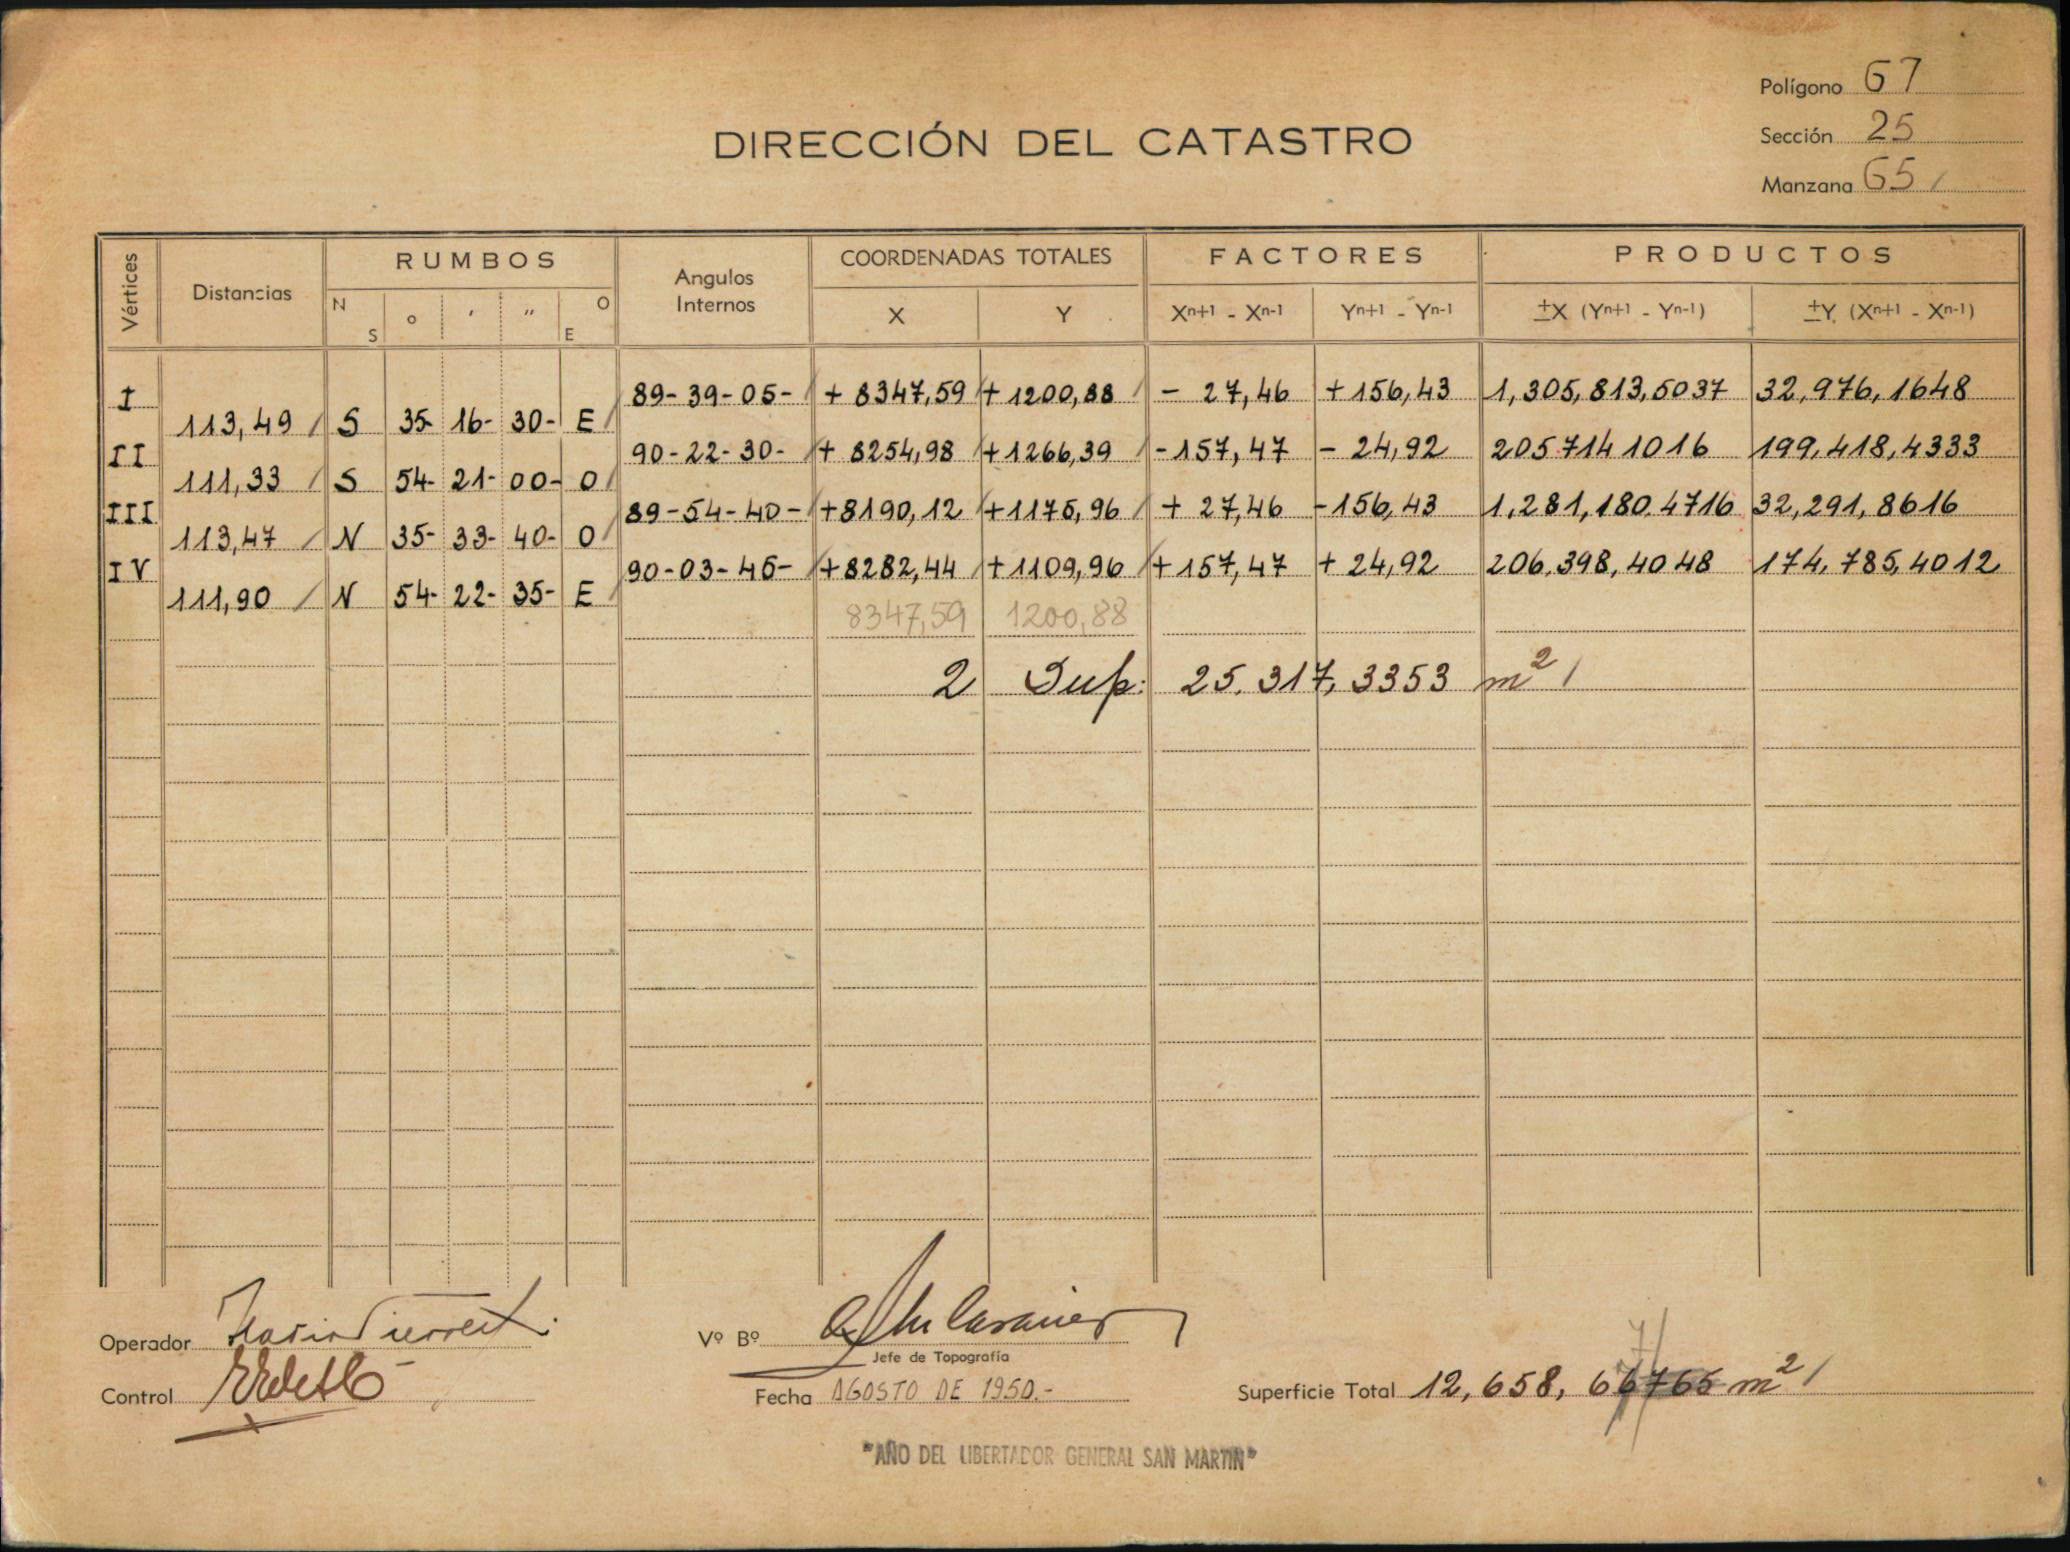 Polígono 67
DIRECCIÓN DEL CATASTRO
Sección 25
Manzana 65 /
Vértices Distancias RUMBOS Angulos Internos COORDENADAS TOTALES FACTORES PRODUCTOS
N S o ' " O E X Y Xn+1 - Xn-1 Yn+1 - Yn-1 ±X (Yn+1 - Yn-1) ±Y (Xn+1 - Xn-1)
I 89-39-05- / + 8347,59 / + 1200,88 / - 27,46 + 156,43 1,305,813,5037 32,976,1648
113,49 / S 35- 16- 30- E /
II 90-22-30- / + 8254,98 / + 1266,39 / - 157,47 - 24,92 205714 1016 199,418,4333
111,33 / S 54- 21- 00- O /
III 89-54-40- / + 8190,12 / + 1175,96 / + 27,46 - 156,43 1,281,180,4716 32,291,8616
113,47 / N 35- 33- 40- O /
IV 90-03-45- / + 8282,44 / + 1109,96 / + 157,47 + 24,92 206,398,4048 174,785,4012
111,90 / N 54- 22- 35- E /
8347,59 1200,88
2 Sup: 25.317,3353 m² /
Operador
Vº Bº
Jefe de Topografía
Control
Fecha AGOSTO DE 1950.-
Superficie Total 12,658,66765 m² /
7/
"AÑO DEL LIBERTADOR GENERAL SAN MARTIN"